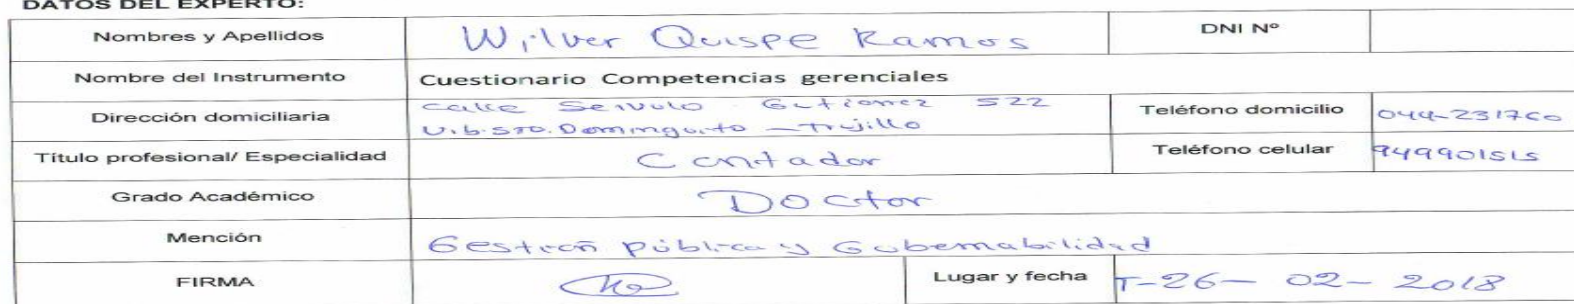 DATOS DEL EXPERTO:
Nombres y Apellidos Wilver Quispe Ramos DNI Nº
Nombre del Instrumento Cuestionario Competencias gerenciales
Dirección domiciliaria Calle Servulo Gutierrez 522 Teléfono domicilio 044-231760
Urb. Sto. Dominguito - Trujillo
Título profesional/ Especialidad Contador Teléfono celular 949901515
Grado Académico Doctor
Mención Gestión pública y Gobernabilidad
FIRMA Lugar y fecha T-26- 02- 2018